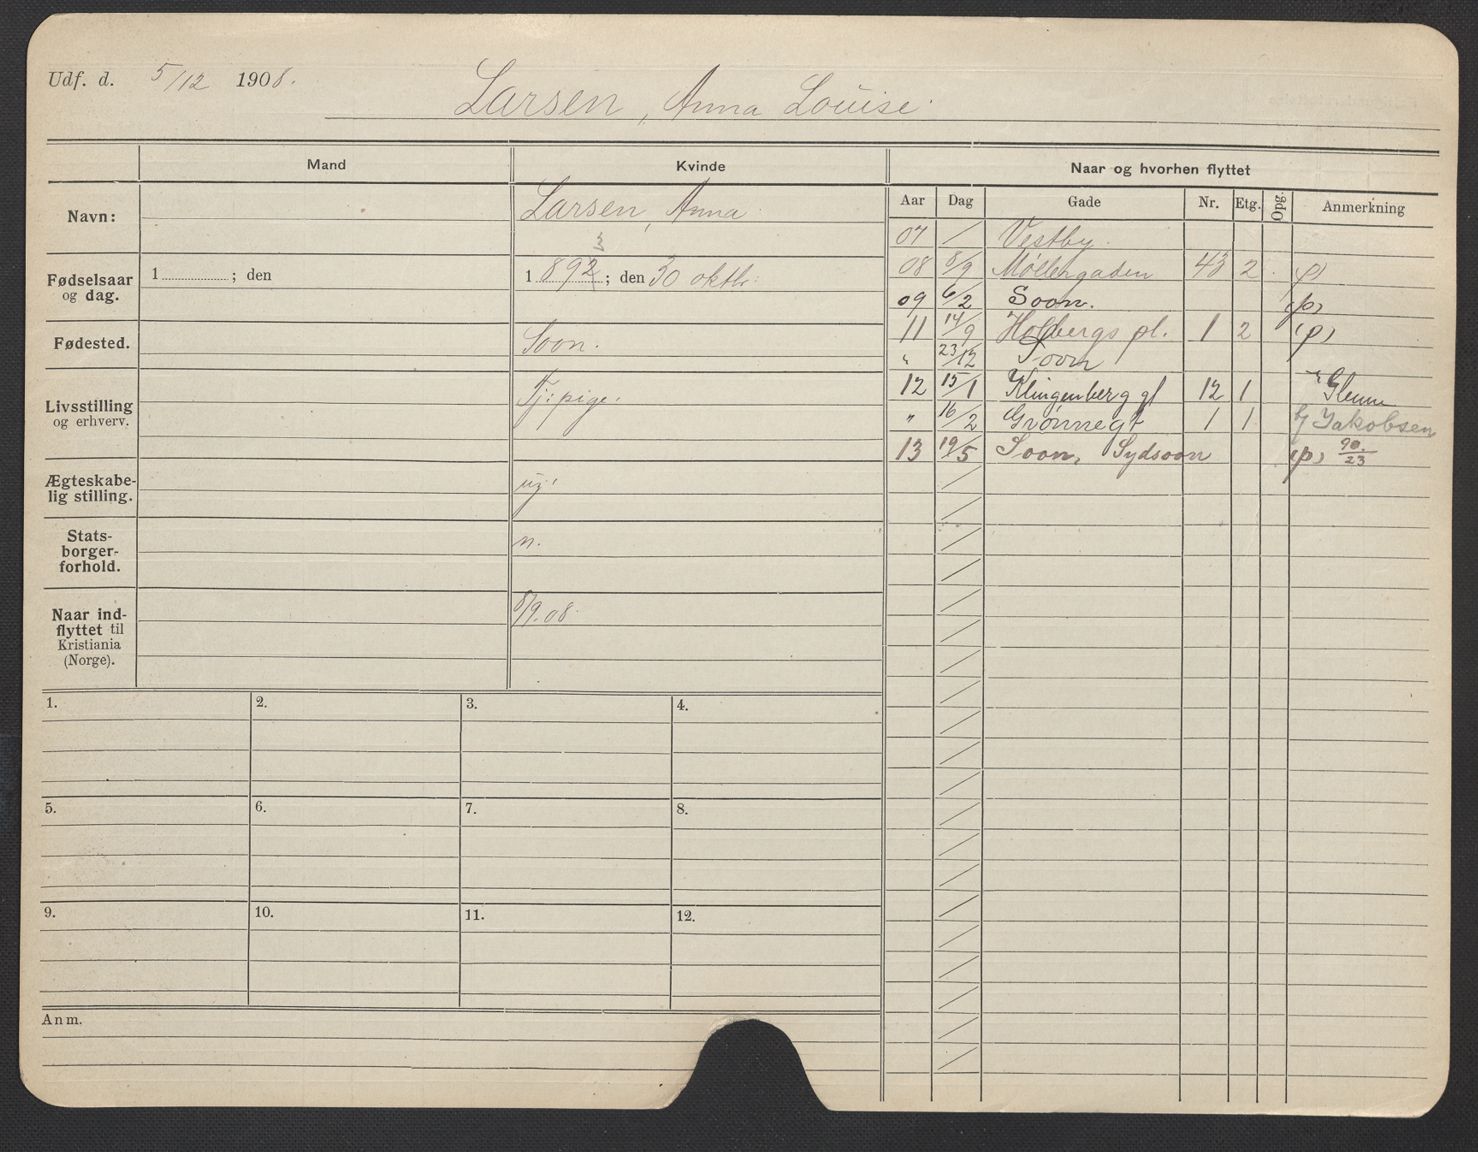 Udf. d. 5/12 1908.
Larsen, Anna Louise.
Mand
Kvinde
Naar og hvorhen flyttet
Aar Dag Gade Nr. Etg. Opg. Anmerkning
Navn:
Larsen, Anna
Fødselsaar
og dag.
1 ; den
3
1 892 ; den 30 oktbr.
Fødested.
Soon.
Livsstilling
og erhverv.
Tj: pige.
Ægteskabe-
lig stilling.
ug.
Stats-
borger-
forhold.
n.
Naar ind-
flyttet til
Kristiania
(Norge).
8/9.08.
07 / Vestby.
08 8/9 Møllergaden 43 2 (p)
09 6/2 Soon. (p)
11 14/9 Holbergs pl. 1 2 (p)
" 23/12 Soon
12 15/1 Klingenberg gt 12 1 Glenne
" 16/2 Grønnegt 1 1 Jakobsen
13 19/5 Soon, Sydsoon (p) 90./23
1. 2. 3. 4.
5. 6. 7. 8.
9. 10. 11. 12.
Anm.